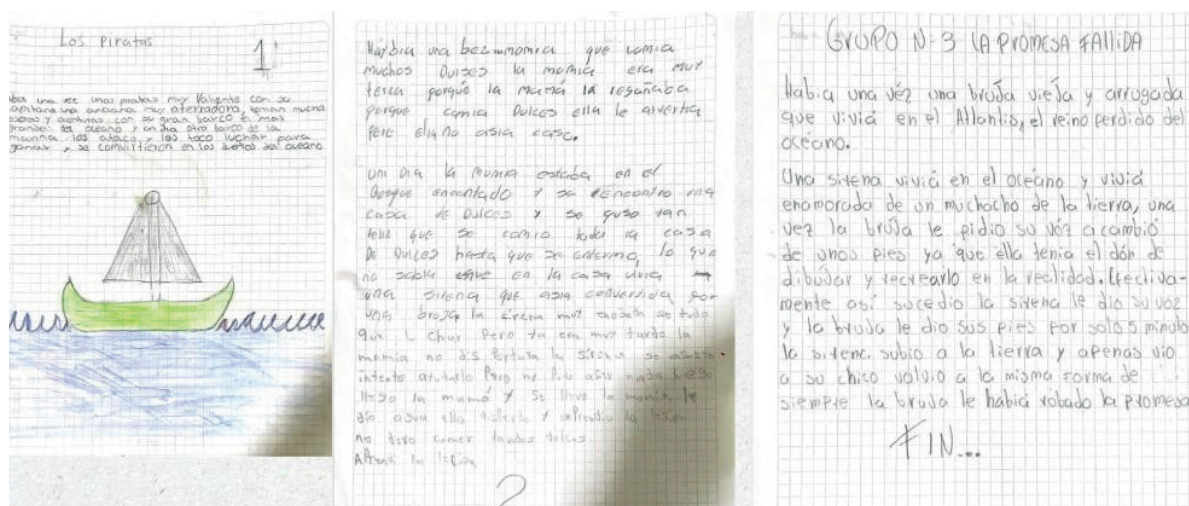 Los piratas
1
una vez unos piratas muy valiente con su
capitana una anciana muy aterradora, tenian mucha
y aventuras con su gran barco el mas
grande del oceano y un dia otro barco de la
marina los ataco y les toco luchar para
ganar y se comvirtieron en los dueños del oceano
Habia una vez una momia que comia
muchos Dulces la momia era muy
terca porque la mama la regañaba
porque comia Dulces ella le alvertia
pero ella no asia caso.
un Dia la momia estaba en el
Bosque encantado y se encontro una
casa de Dulces y se puso tan
feliz que se comio toda la casa
De Dulces hasta que se enfermo, lo que
no sabia es que en la casa vivia
una sirena que asia convertida por
una bruja la sirena muy
Pero ya era muy tarde la
momia no la sirena se
intento ayudarlo Pero no nada
llego la mamá y se llevo la momia le
dio agua ella y aprendio la
no comer dulces
2
GRUPO N-3 LA PROMESA FALLIDA
Habia una véz una bruja vieja y arrugada
que viviá en el Atlantis, el reino perdido del
océano.
Una sirena viviá en el océano y viviá
enamorada de un muchacho de la tierra, una
vez la bruja le pidio su vóz a cambió
de unos pies ya que ella tenia el dón de
dibujar y recrearlo en la realidad. Efectiva-
mente así sucedio la sirena le dio su voz
y la bruja le dio sus pies por solo 5 minuto
la sirena subio a la tierra y apenas vio
a su chico volvio a la misma forma de
siempre la bruja le habiá robado la promesa
FIN...